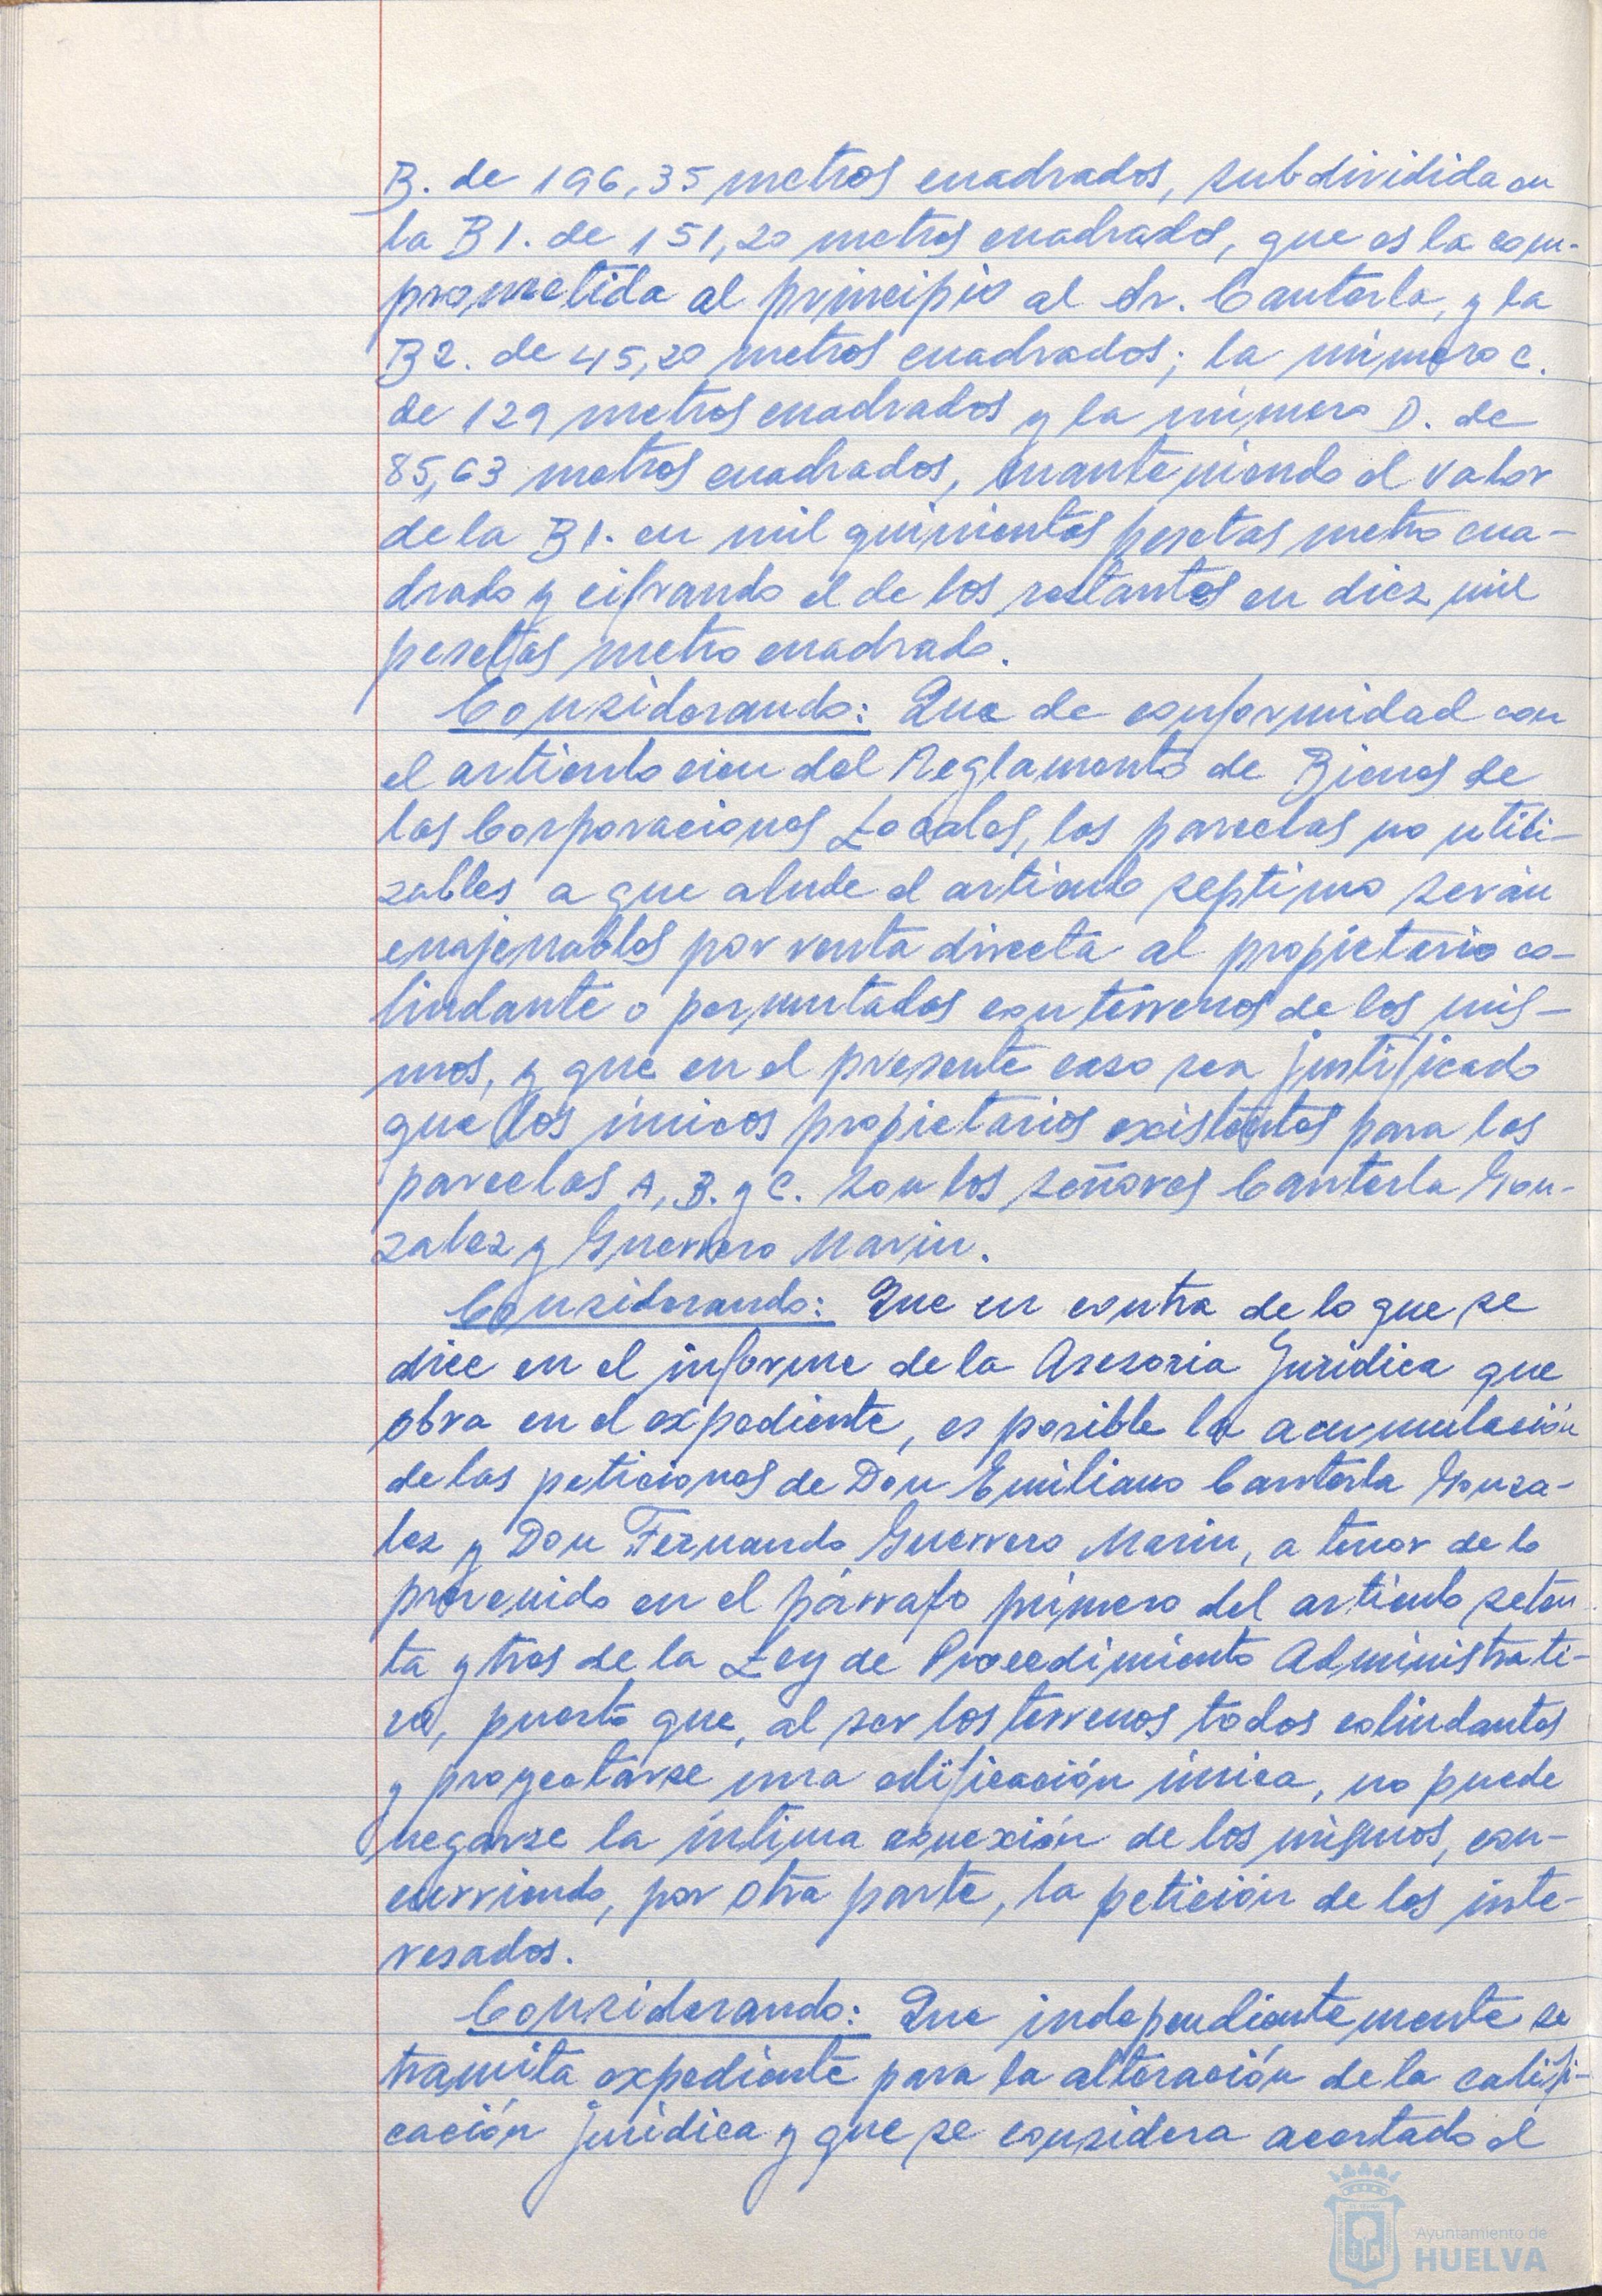 B. de 196,35 metros cuadrados, subdividida en
la B1. de 151,20 metros cuadrados, que es la com-
prometida al principio al Sr. Canterla, y la
B2. de 45,20 metros cuadrados; la número C.
de 129 metros cuadrados y la número D. de
85,63 metros cuadrados, manteniendo el valor
de la B1. en mil quinientas pesetas metro cua-
drado y cifrando el de los restantes en diez mil
pesetas metro cuadrado.
Considerando: Que de conformidad con
el artículo cien del Reglamento de Bienes de
las Corporaciones Locales, las parcelas no utili-
zables a que alude el artículo septimo serán
enajenables por venta directa al propietario co-
lindante o permutadas con terrenos de los mis-
mos, y que en el presente caso sea justificado
que los únicos propietarios existentes para las
parcelas A, B. y C. son los señores Canterla Gon-
zalez y Guerrero Marin.
Considerando: Que en contra de lo que se
dice en el informe de la Asesoria Juridica que
obra en el expediente, es posible la acumulación
de las peticiones de Don Emiliano Canterla Gonza-
lez y Don Fernando Guerrero Marin, a tenor de lo
prevenido en el párrafo primero del artículo seten-
ta y tres de la Ley de Procedimiento Administrati-
vo, puesto que, al ser los terrenos todos colindantes
y proyectarse una edificación única, no puede
negarse la íntima conexión de los mismos, con-
curriendo, por otra parte, la petición de los inte-
resados.
Considerando: Que independientemente se
tramita expediente para la alteración de la califi-
cación juridica y que se considera acertado el
Ayuntamiento de
HUELVA